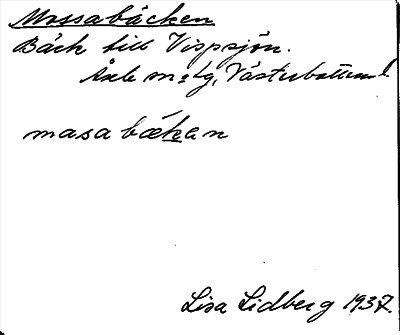 Mossabäcken
Bäck till Vispsjön.
Åsele m. Lg, Västerbotten.
masa bækan
Lisa Lidberg 1937.